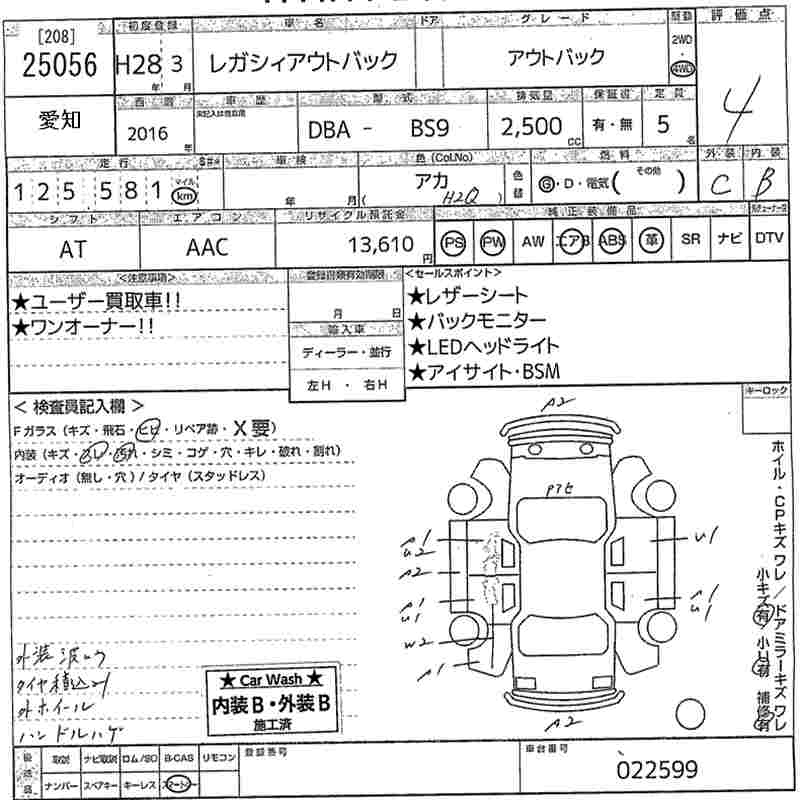 初度登録 車名 ドア グレード 駆動 評価点
[208]
25056 H28年 3月 レガシィアウトバック アウトバック 2WD 4WD 4
愛知
西暦 車歴 型式 排気量 保証書 定員
未記入は自家用
2016年 DBA - BS9 2,500cc 有・無 5名
走行 車検 色(Col.No) 燃料 外装 内装
125,581 マイル km 年 月 アカ ( H2Q ) 色替 G・D・電気( その他 ) C B
シフト エアコン リサイクル預託金 純正装備品
AT AAC 13,610円 PS PW AW エアB ABS 革 SR ナビ DTV
<注意事項> 登録書類有効期限 <セールスポイント>
★ユーザー買取車!! ★レザーシート
★ワンオーナー!! 月 日 ★バックモニター
輸入車 ★LEDヘッドライト
ディーラー・並行 ★アイサイト・BSM
左H ・ 右H
キーロック
< 検査員記入欄 >
Fガラス(キズ・飛石・ヒビ・リペア跡・X要)
内装(キズ・スレ・汚れ・シミ・コゲ・穴・キレ・破れ・割れ)
オーディオ(無し・穴)/タイヤ(スタッドレス)
A2
A1
U2
U1
A2
A1
U1
A1
U1
W2
A1
A2
ホイル・CPキズ ワレ/ドアミラーキズ ワレ
小キズ有/小U有 補修有
タイヤ積込
外ホイール
ハンドルハゲ
★ Car Wash ★
内装B・外装B
施工済
後送品 取説 ナビ取説 ロム/SD B-CAS リモコン 登録番号 車台番号
ナンバー スペアキー キーレス スマートキー 022599